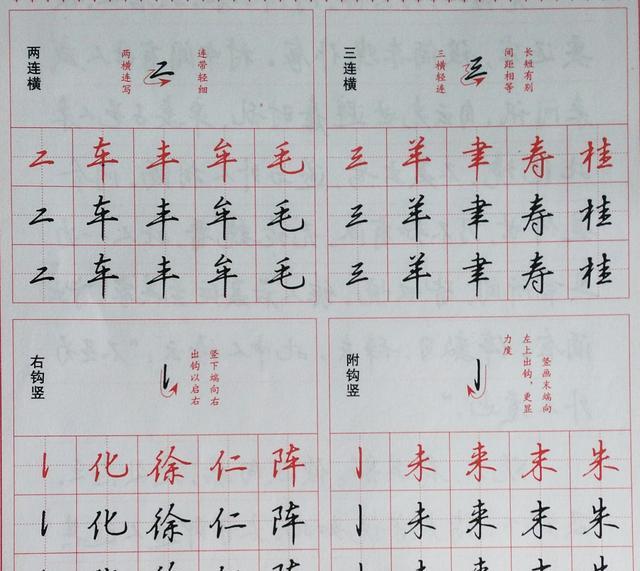 两连横
两横连写
连带轻细
二 车 丰 牟 毛
二 车 丰 牟 毛
二 车 丰 牟 毛
三连横
三横轻连
间距相等
长短有别
三 羊 聿 寿 桂
三 羊 聿 寿 桂
三 羊 聿 寿 桂
右钩竖
出钩以启右
竖下端向右
化 徐 仁 阵
化 徐 仁 阵
附钩竖
力度
左上出钩，更显
竖画末端向
未 来 末 朱
未 来 末 朱